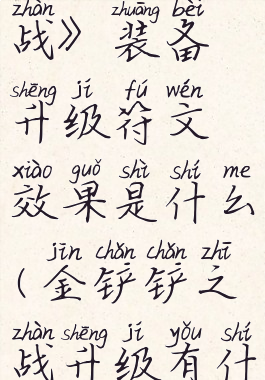 zhàn zhuāng bèi
战》 装备
shēng jí fú wén
升级符文
xiào guǒ shì shí me
效果是什么
jīn chǎn chǎn zhī
（金铲铲之
zhàn shēng jí yǒu shí
战升级有什